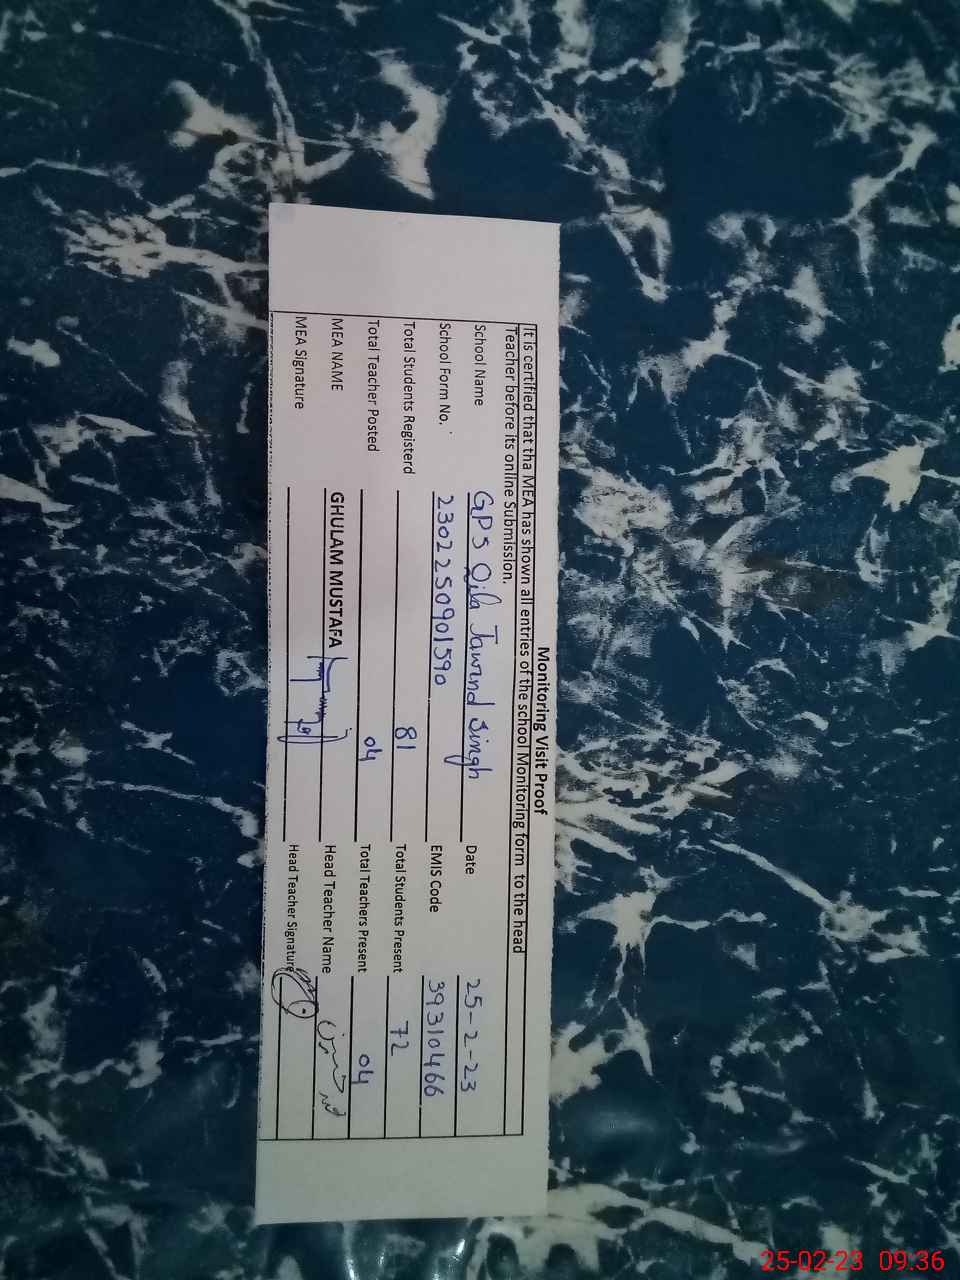 Monitoring Visit Proof
It is certified that tha MEA has shown all entries of the school Monitoring form to the head
Teacher before its online Submission.
School Name GPS Qila Jawand Singh Date 25-2-23
School Form No. 2302250901590 EMIS Code 39310466
Total Students Registerd 81 Total Students Present 72
Total Teacher Posted 04 Total Teachers Present 04
MEA NAME GHULAM MUSTAFA Head Teacher Name
MEA Signature Head Teacher Signature
25-02-23 09:36